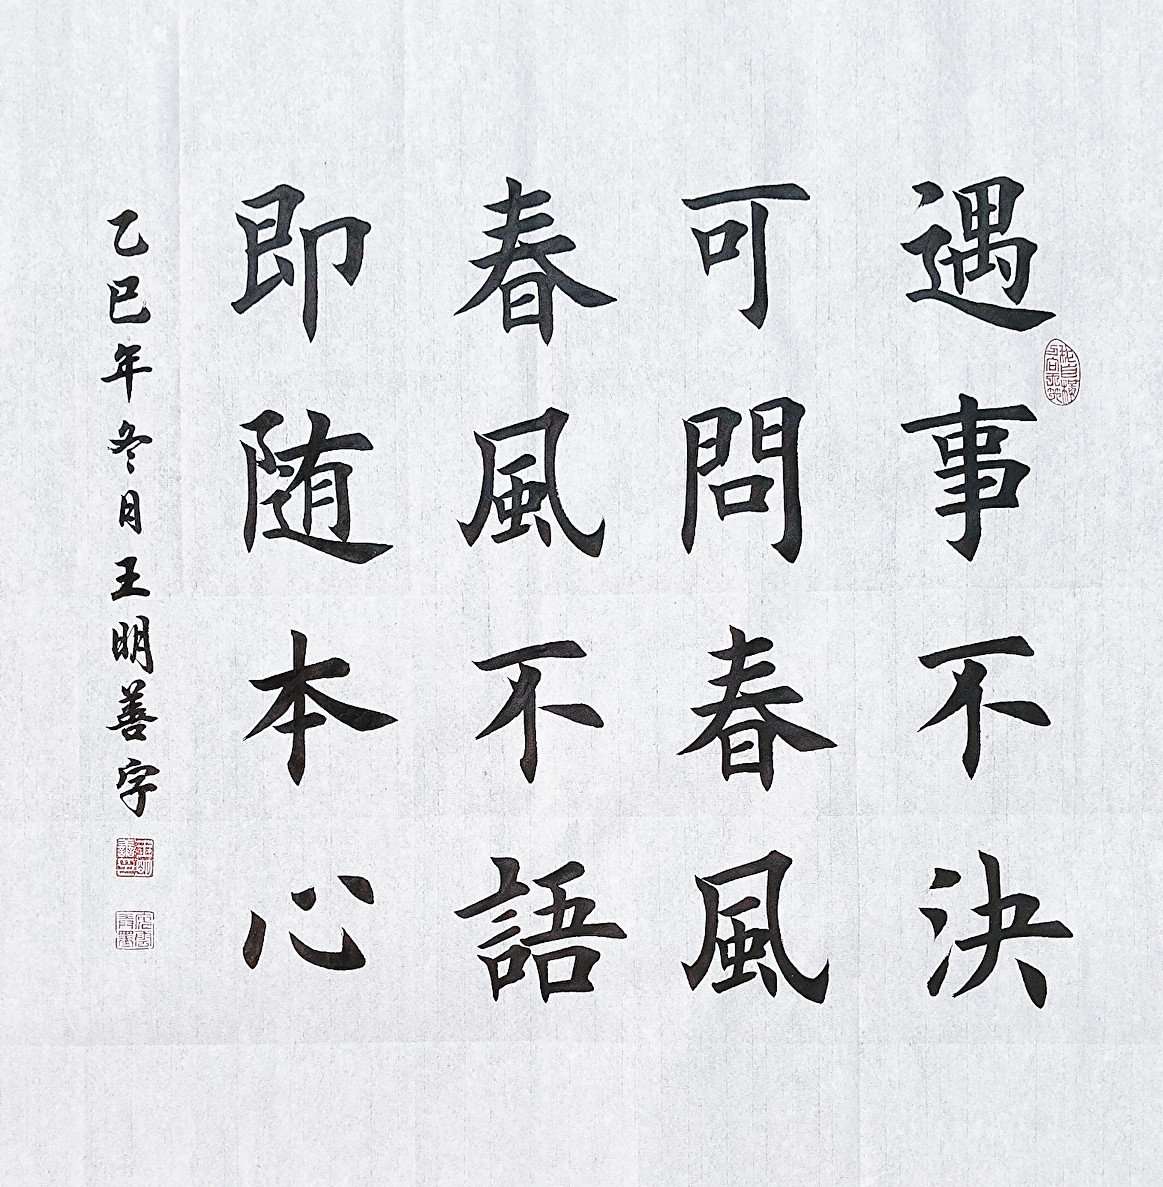 遇事不決
可問春風
春風不語
即随本心
乙巳年冬月王明善字